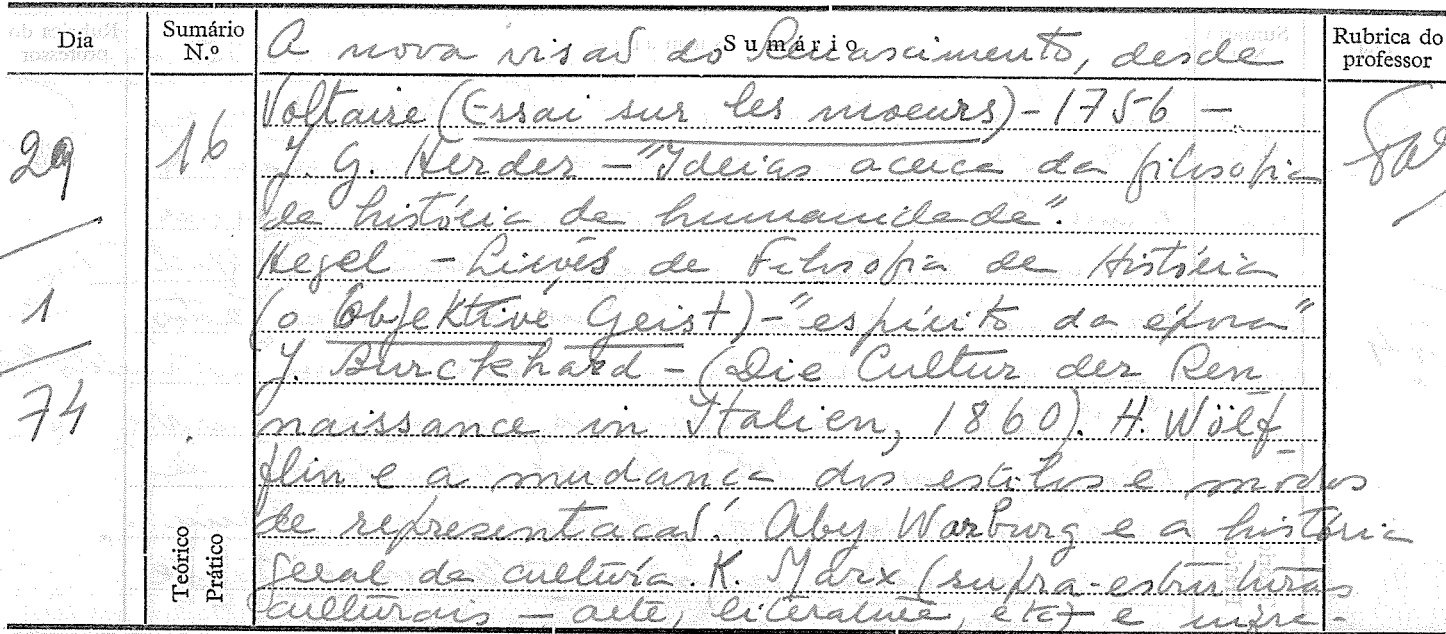 Dia
Sumário N.º
Sumário
Rubrica do professor
29
1
74
16
A nova visão do Renascimento, desde
Voltaire (Essai sur les moeurs) - 1756 —
J. G. Herder - "Ideias acerca da filosofia
da história da humanidade".
Hegel - Lições de Filosofia da História
(o Objektive Geist) - "espírito da época"
J. Burckhard - (Die Cultur der Ren
naissance in Italien, 1860). H. Wölf-
flin e a mudança dos estilos e modos
de representação. Aby Warburg e a história
geral da cultura. K. Marx (supra-estruturas
culturais — arte, literatura, etc) e infra-
Teórico
Prático